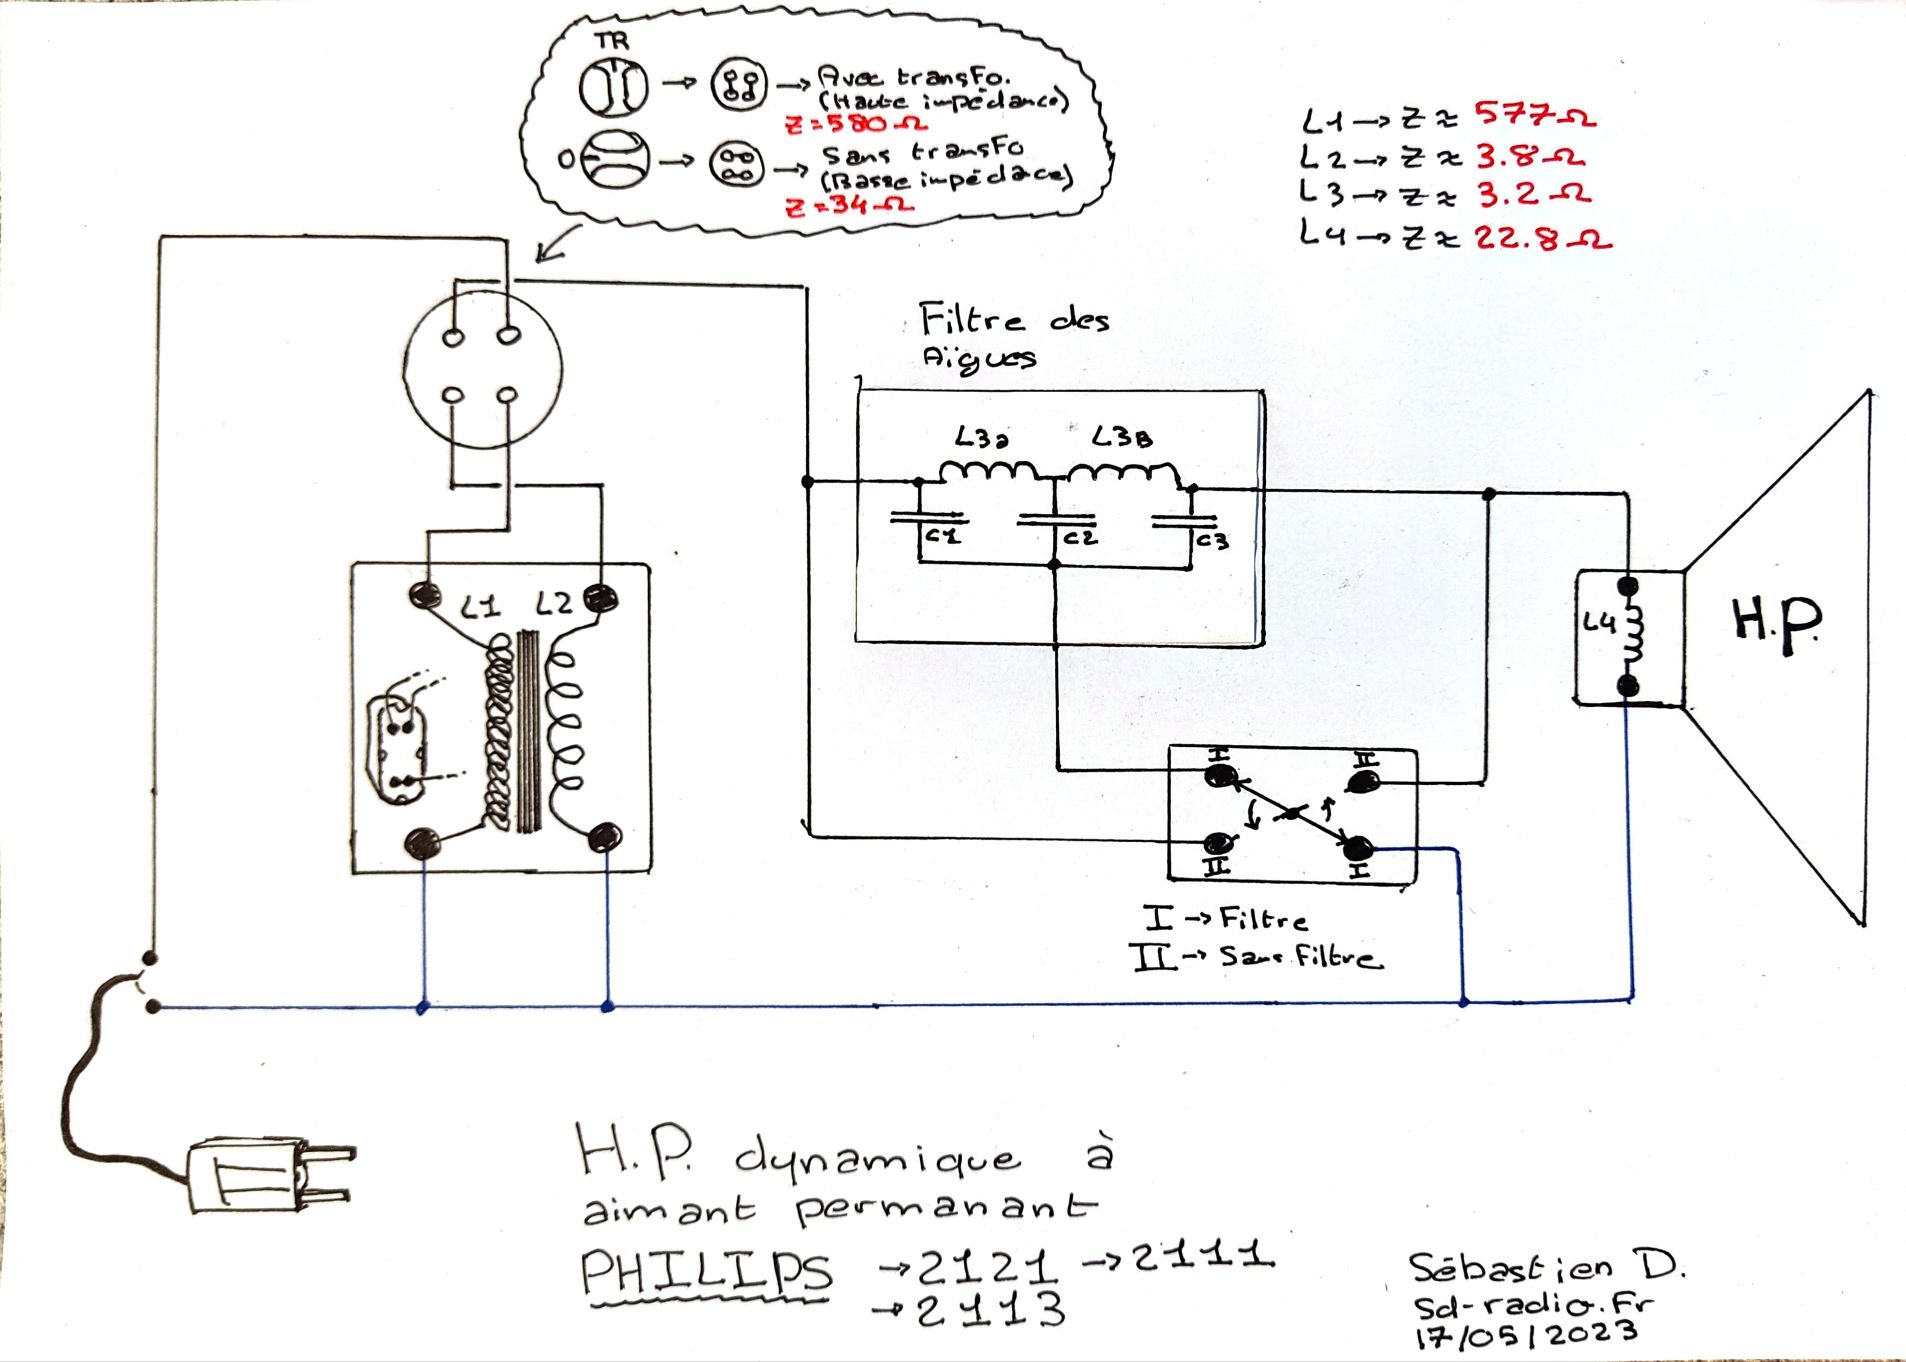 TR
→ Avec transfo.
(Haute impédance)
Z = 580 Ω
O
→ Sans transfo
(Basse impédace)
Z = 34 Ω
L1 → Z ≈ 577 Ω
L2 → Z ≈ 3.8 Ω
L3 → Z ≈ 3.2 Ω
L4 → Z ≈ 22.8 Ω
Filtre des
Aïgues
L3a L3B
C1 C2 C3
L1 L2
L4
H.P.
I II
II I
I → Filtre
II → Sans Filtre
H.P. dynamique à
aimant permanant
PHILIPS → 2121 → 2111
→ 2113
Sébastien D.
Sd-radio.Fr
17/05/2023